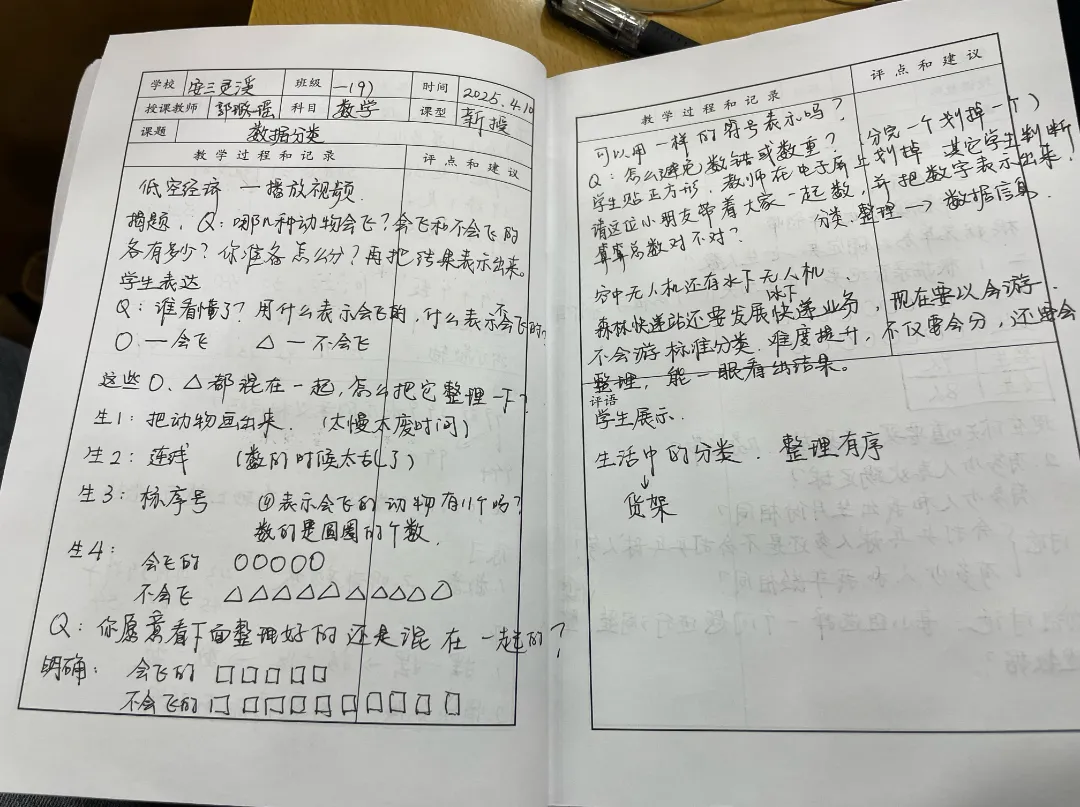 学校 安三灵溪 班级 一(9) 时间 2025.4.10
授课教师 郭璐瑶 科目 数学 课型 新授
课题 数据分类
教学过程和记录 评点和建议
低空经济 — 播放视频
揭题，Q：哪几种动物会飞？会飞和不会飞的
各有多少？你准备怎么分？再把结果表示出来。
学生表达
Q：谁看懂了？用什么表示会飞的，什么表示不会飞的？
○ — 会飞 △ — 不会飞
这些○、△都混在一起，怎么把它整理一下？
生1：把动物画出来．（太慢太废时间）
生2：连线 （数的时候太乱了）
生3：标序号 ⑪表示会飞的动物有11个吗？
数的是圆圈的个数．
生4：
会飞的 ○○○○○
不会飞 △△△△△△△△△○
Q：你愿意看下面整理好的还是混在一起的？
明确： 会飞的 □□□□□
不会飞的 □□□□□□□□□□
教学过程和记录 评点和建议
可以用一样的符号表示吗？
Q：怎么避免数错或数重？（分完一个划掉一个）
学生贴正方形，教师在电子屏上划掉，其它学生判断
请这位小朋友带着大家一起数，并把数字表示出来．
算算总数对不对？ 分类．整理 → 数据信息
空中无人机还有水下无人机．
森林快递站还要发展水下快递业务，现在要以会游．
不会游标准分类．难度提升，不仅要会分，还要会
整理，能一眼看出结果。
评语
学生展示．
生活中的分类． 整理有序
↓
货架